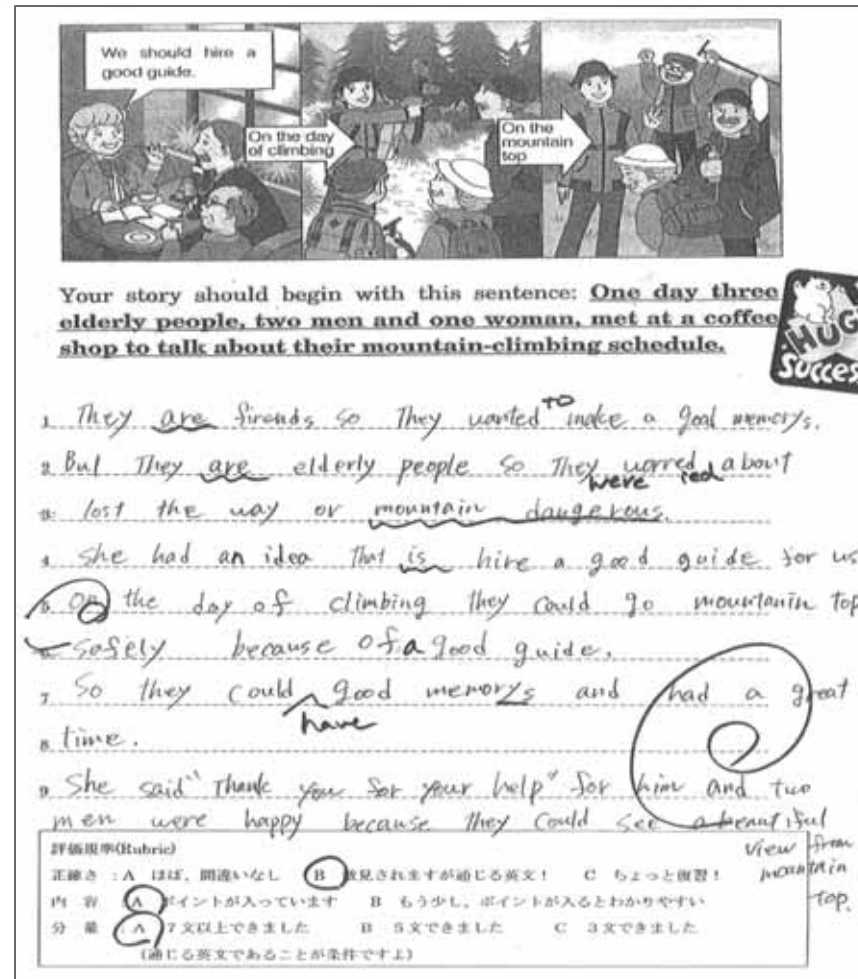 We should hire a
good guide.
On the day
of climbing
On the
mountain
top
Your story should begin with this sentence: One day three
elderly people, two men and one woman, met at a coffee
shop to talk about their mountain-climbing schedule.
HUG
Succes
1 They are firends so They wanted to make a good memorys.
2 But They are elderly people so They were worred ied about
3 lost the way or mountain dangerous.
4 She had an idea That is hire a good guide for us
5 On the day of climbing they could go mountanin top
6 safely because of a good guide.
7 So they could have good memorys and had a great
8 time.
9 She said "Thank you for your help" for him and two
men were happy because they could see a beautiful
view from
mountain
top.
評価規準(Rubric)
正確さ : A ほぼ、間違いなし B 散見されますが通じる英文! C ちょっと復習!
内 容 : A ポイントが入っています B もう少し、ポイントが入るとわかりやすい
分 量 : A 7文以上できました B 5文できました C 3文できました
(通じる英文であることが条件ですよ)